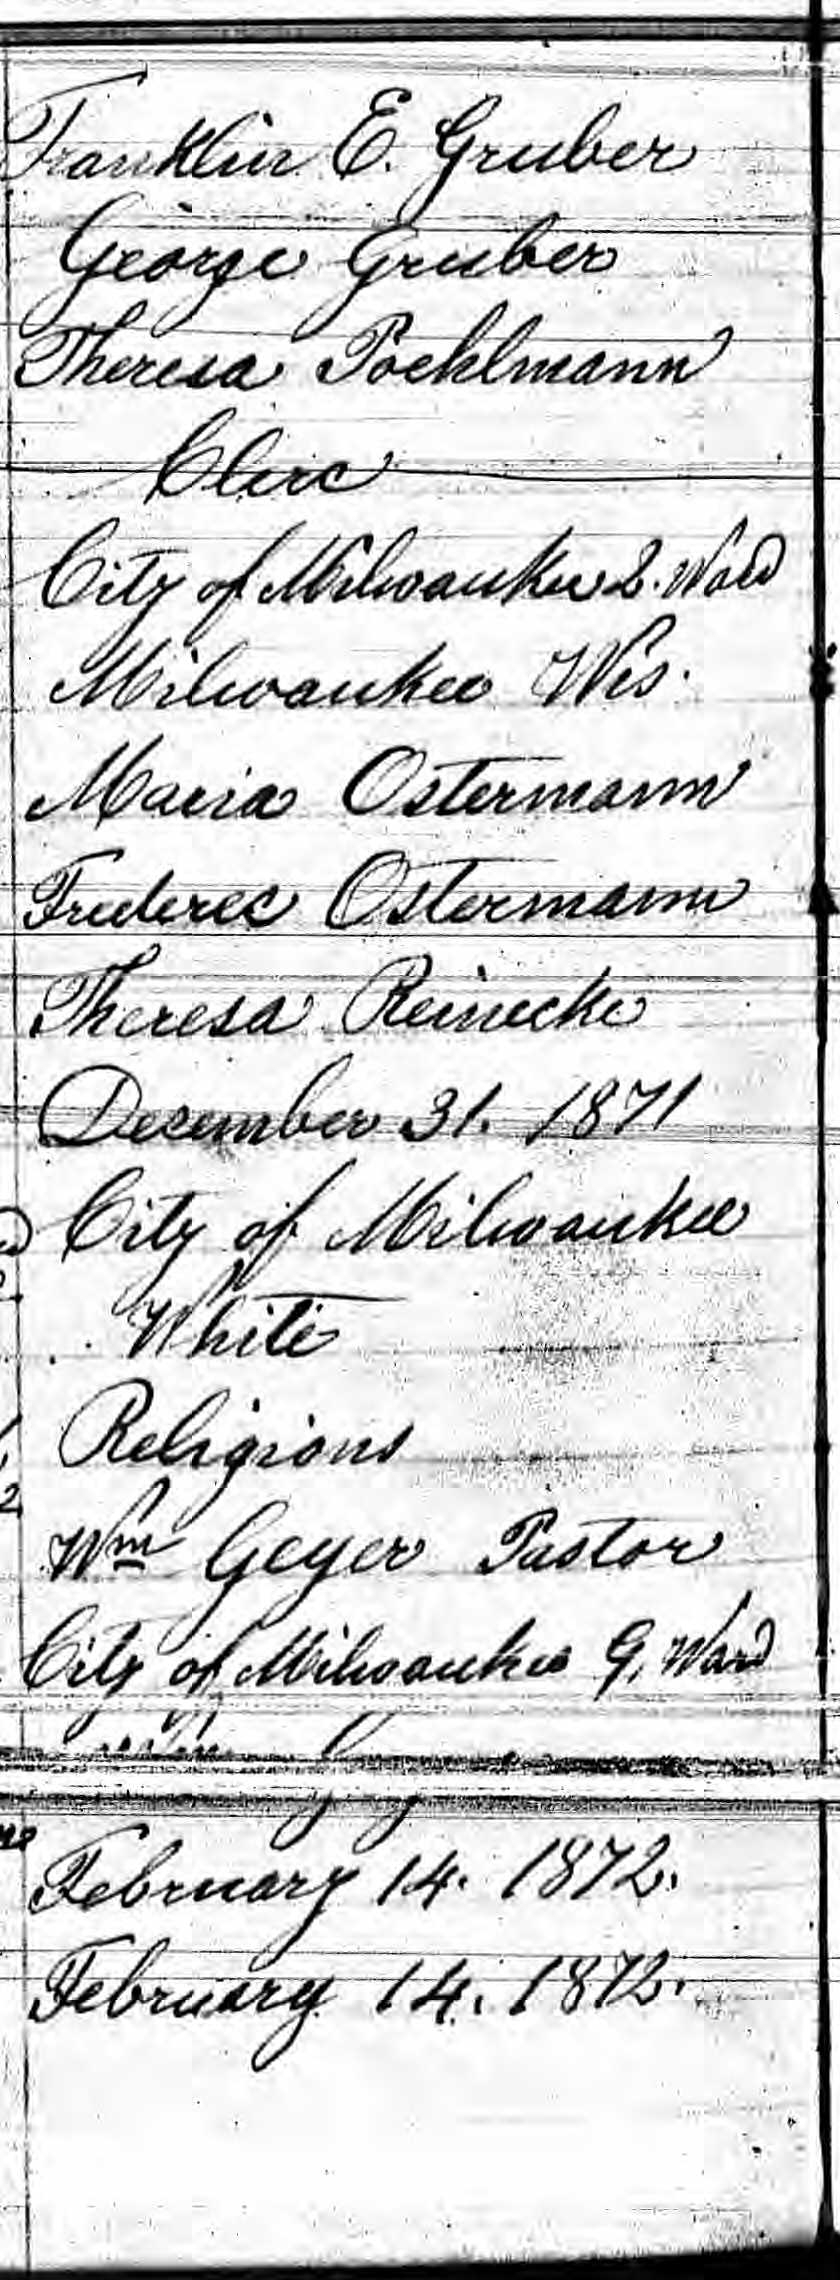 Franklin E. Gruber
George Gruber
Theresa Poehlmann
Clerc
City of Milwaukee 2. Ward
Milwaukee Wis.
Maria Ostermann
Frederec Ostermann
Theresa Reinecke
December 31. 1871
City of Milwaukee
White
Religions
Wm Geyer Pastor
City of Milwaukee 9, Ward
February 14. 1872.
February 14. 1872.